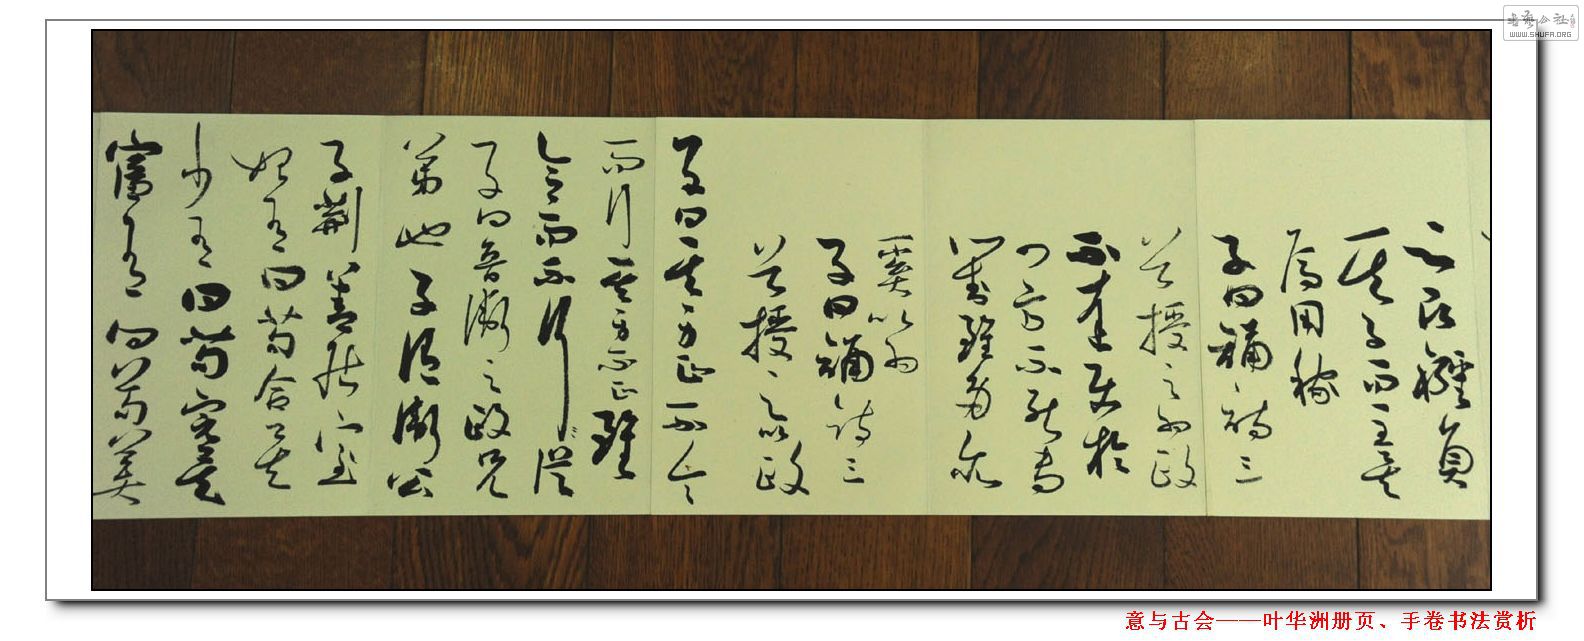 之民襁負
其子而至矣
焉用稼
子曰誦詩三
百授之為政
不達使於
四方不能專
對雖多亦
奚以為
子曰誦詩三
百授之以政
子曰其身正不令
而行其身不正雖
令而不行從
子曰魯衛之政兄
弟也子謂衛公
子荊善居室
始有曰苟合矣
少有曰苟完矣
富有曰苟美
意与古会——叶华洲册页、手卷书法赏析
书艺公社
WWW.SHUFA.ORG